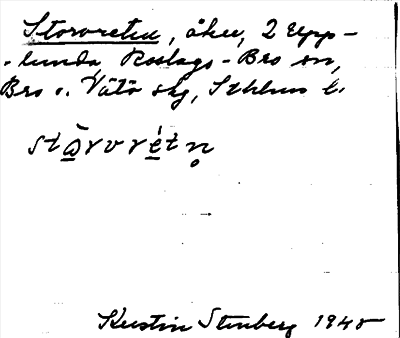 Storvreten, åker, 2 Upp-
lunda, Roslags-Bro sn,
Bro o. Vätö skg, Sthlms l.
stàrvrétn̥
Kerstin Stenberg 1948